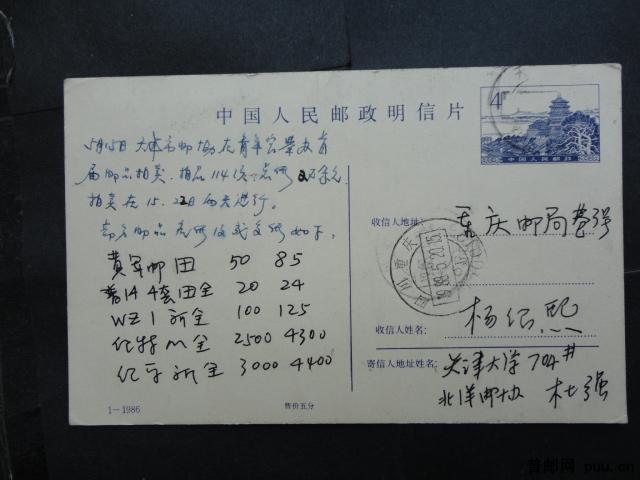 中国人民邮政明信片
4分
中国人民邮政
5月15日 天津市邮协在青年宫举办首
届邮品拍卖.拍品114
拍卖在15.22日两天进行。
部分邮品底价及成交价如下.
黄军邮 田 50 85
普14 4套田全 20 24
WZ1新全 100 125
纪特M全 2500 4300
纪 新全 3000 4400
收信人地址:
重庆邮局
四川重庆
收信人姓名:
杨绍熙
寄信人地址姓名:
天津大学704#
北洋邮协 杜强
1—1986
售价五分
普邮网 puu.cn